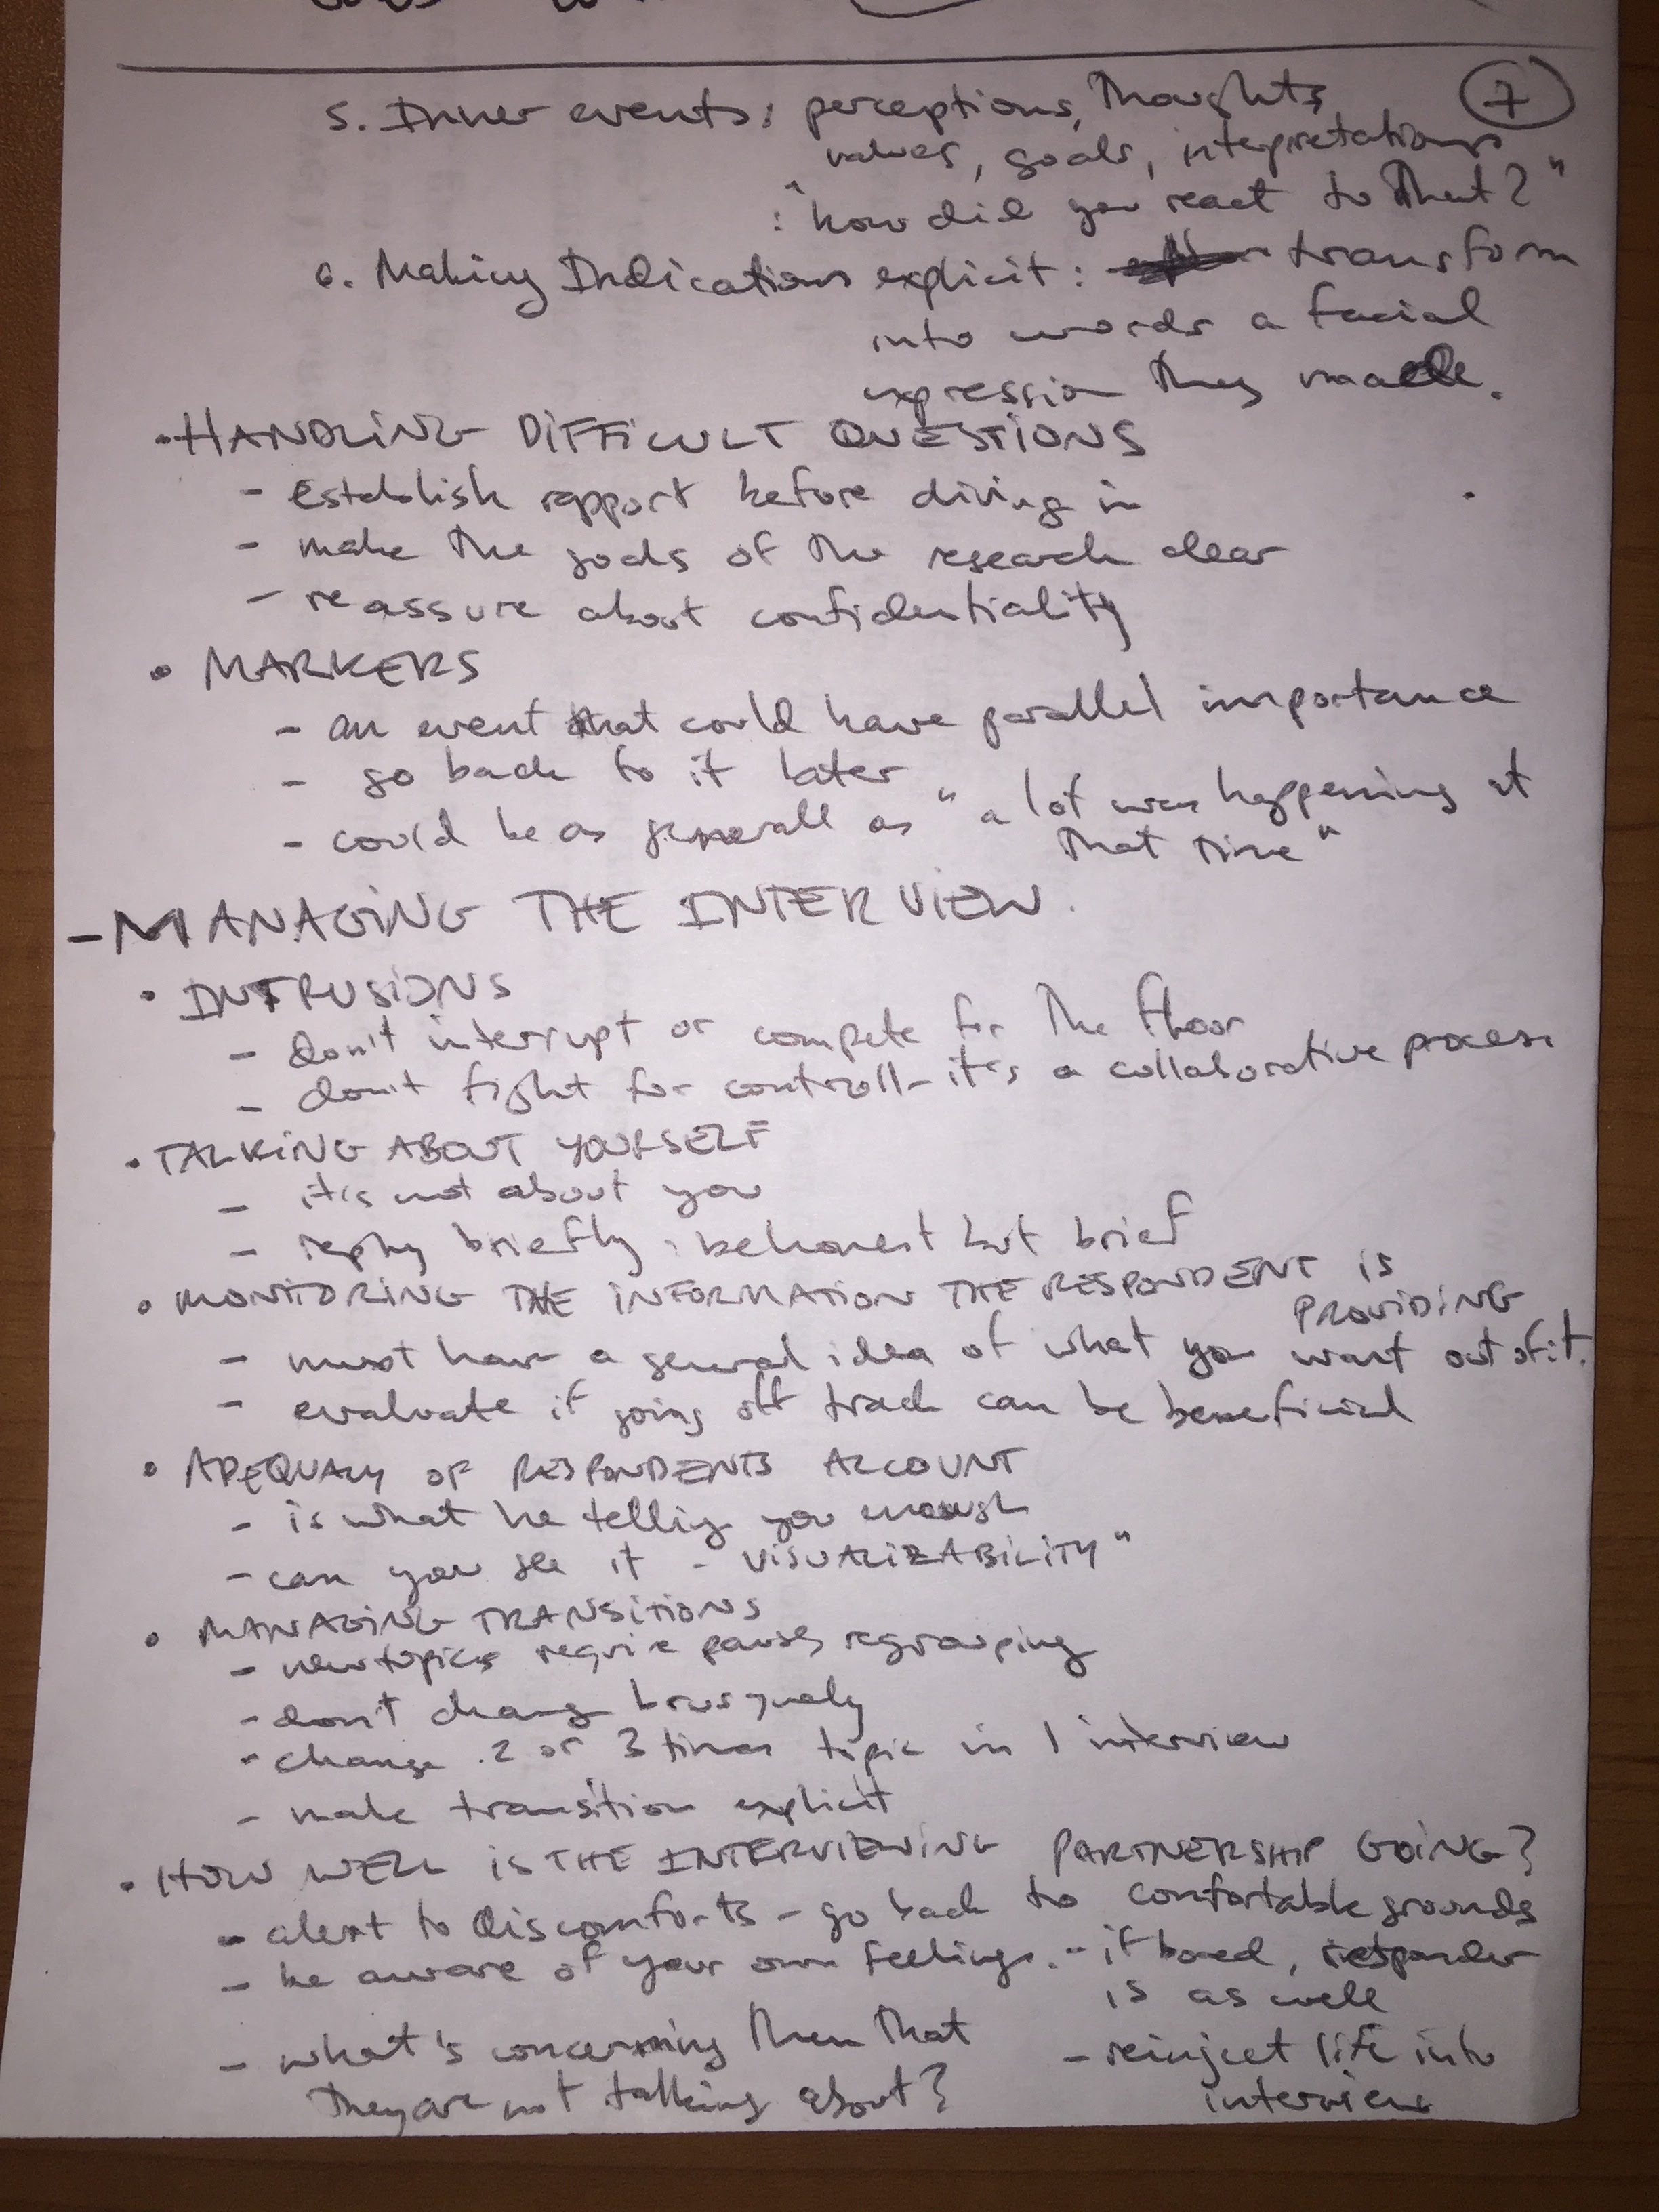 5. Inner events: perceptions, thoughts, 7
values, goals, interpretations
: "how did you react to that?"
6. Making Indications explicit: transform
into words a facial
expression they made.
• HANDLING DIFFICULT QUESTIONS
- establish rapport before diving in
- make the goals of the research clear
- reassure about confidentiality
• MARKERS
- an event that could have parallel importance
- go back to it later
- could be as generall as "a lot was happening at
that time"
- MANAGING THE INTERVIEW.
• INTRUSIONS
- don't interrupt or compete for the floor
- don't fight for controll - it's a collaborative process
• TALKING ABOUT YOURSELF
- it's not about you
- reply briefly : be honest but brief
• MONITORING THE INFORMATION THE RESPONDENT IS
PROVIDING
- must have a general idea of what you want out of it.
- evaluate if going off track can be beneficial
• ADEQUACY OF RESPONDENTS ACCOUNT
- is what he telling you enough
- can you see it - VISUALIZABILITY"
• MANAGING TRANSITIONS
- new topics require pauses, regrouping
- don't change brusquely
- change 2 or 3 times topic in 1 interview
- make transition explicit
• HOW WELL IS THE INTERVIEWING PARTNERSHIP GOING?
- alert to discomforts - go back to comfortable grounds
- be aware of your own feelings. - if bored, responder
is as well
- what's concerning them that
they are not talking about?
- reinject life into
interview